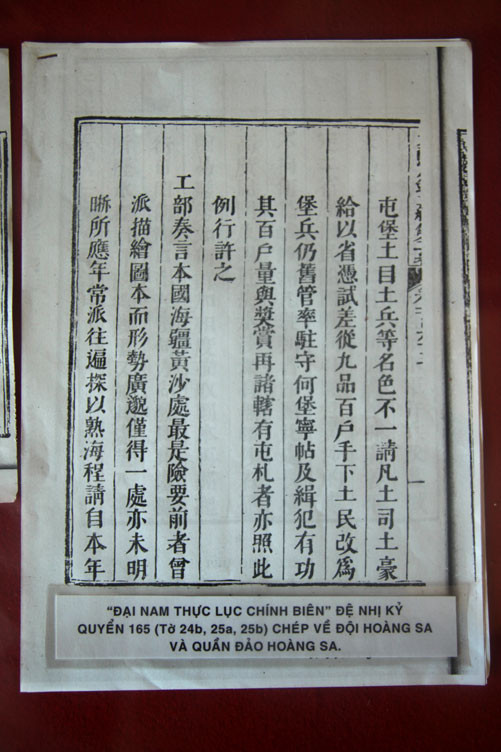 屯堡土目土兵等名色不一請凡土司土豪
給以省憑試差從九品百戶手下土民改爲
堡兵仍舊管率駐守何堡寧帖及緝犯有功
其百戶量與獎賞再諸轄有屯札者亦照此
例行許之
工部奏言本國海疆黃沙處最是險要前者曾
派描繪圖本而形勢廣邈僅得一處亦未明
晰所應年常派往遍探以熟海程請自本年
"ĐẠI NAM THỰC LỤC CHÍNH BIÊN" ĐỆ NHỊ KỶ
QUYỂN 165 (Tờ 24b, 25a, 25b) CHÉP VỀ ĐỘI HOÀNG SA
VÀ QUẦN ĐẢO HOÀNG SA.